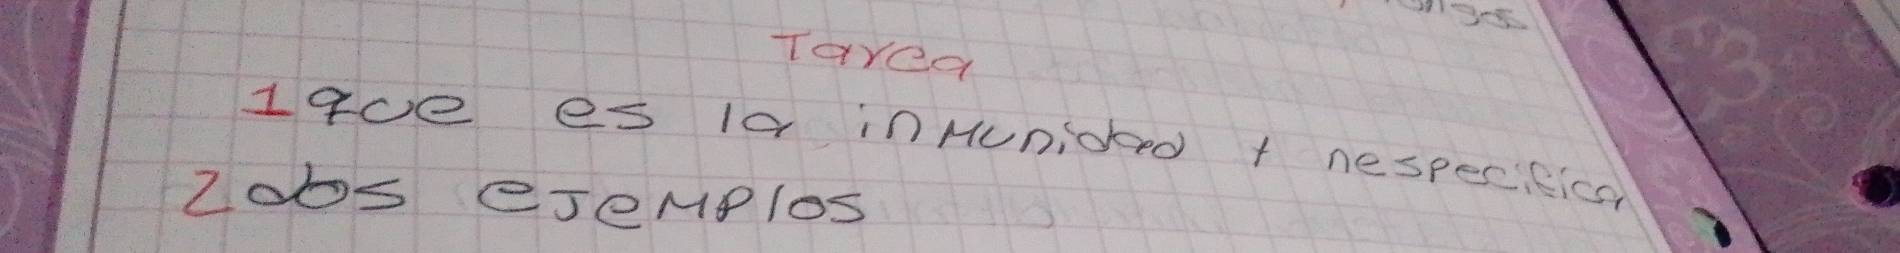 Tarea
1 que es la inmunidad inespecifica
2 dos ejemplos